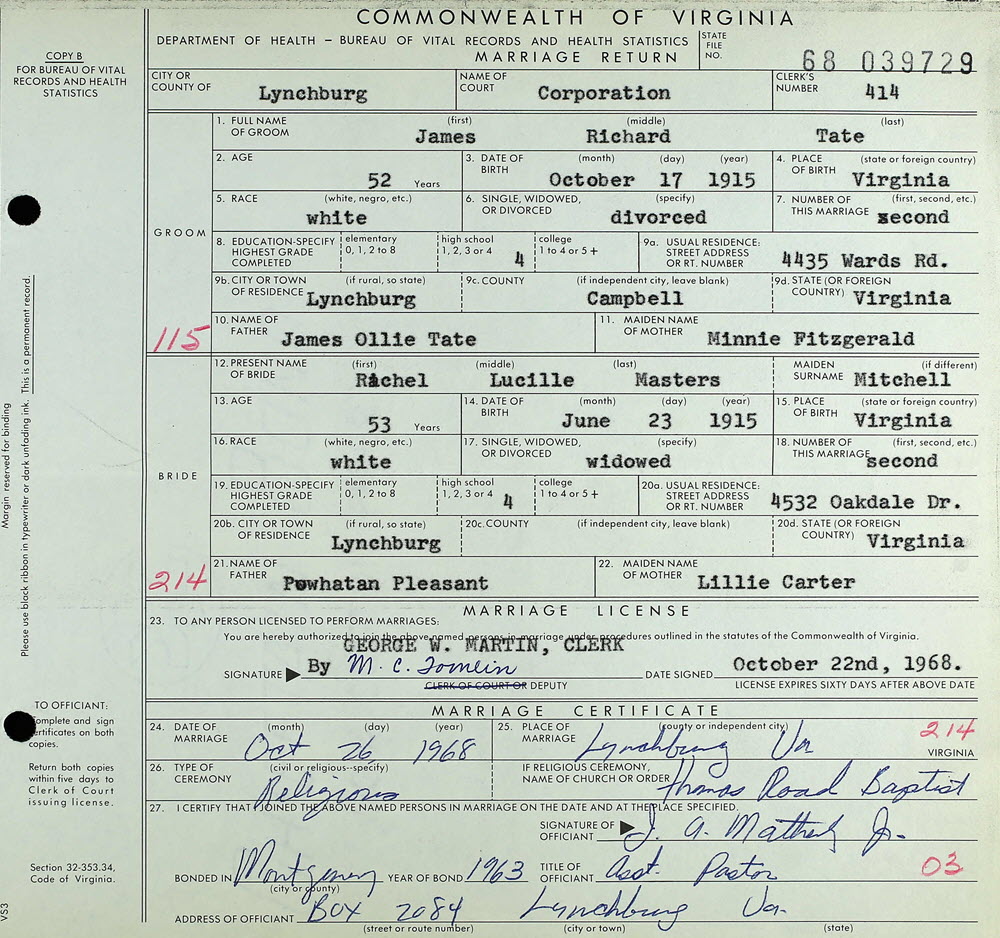 COMMONWEALTH OF VIRGINIA
DEPARTMENT OF HEALTH – BUREAU OF VITAL RECORDS AND HEALTH STATISTICS
MARRIAGE RETURN
STATE FILE NO. 68 039729
COPY B
FOR BUREAU OF VITAL
RECORDS AND HEALTH
STATISTICS
CITY OR COUNTY OF Lynchburg NAME OF COURT Corporation CLERK'S NUMBER 414
GROOM
1. FULL NAME OF GROOM (first) James (middle) Richard (last) Tate
2. AGE 52 Years 3. DATE OF BIRTH (month) (day) (year) October 17 1915 4. PLACE OF BIRTH (state or foreign country) Virginia
5. RACE (white, negro, etc.) white 6. SINGLE, WIDOWED, OR DIVORCED (specify) divorced 7. NUMBER OF THIS MARRIAGE (first, second, etc.) second
8. EDUCATION-SPECIFY HIGHEST GRADE COMPLETED elementary 0, 1, 2 to 8 high school 1, 2, 3 or 4 4 college 1 to 4 or 5+ 9a. USUAL RESIDENCE: STREET ADDRESS OR RT. NUMBER 4435 Wards Rd.
9b. CITY OR TOWN OF RESIDENCE (if rural, so state) Lynchburg 9c. COUNTY (if independent city, leave blank) Campbell 9d. STATE (OR FOREIGN COUNTRY) Virginia
115 10. NAME OF FATHER James Ollie Tate 11. MAIDEN NAME OF MOTHER Minnie Fitzgerald
BRIDE
12. PRESENT NAME OF BRIDE (first) Rachel (middle) Lucille (last) Masters MAIDEN SURNAME (if different) Mitchell
13. AGE 53 Years 14. DATE OF BIRTH (month) (day) (year) June 23 1915 15. PLACE OF BIRTH (state or foreign country) Virginia
16. RACE (white, negro, etc.) white 17. SINGLE, WIDOWED, OR DIVORCED (specify) widowed 18. NUMBER OF THIS MARRIAGE (first, second, etc.) second
19. EDUCATION-SPECIFY HIGHEST GRADE COMPLETED elementary 0, 1, 2 to 8 high school 1, 2, 3 or 4 4 college 1 to 4 or 5+ 20a. USUAL RESIDENCE: STREET ADDRESS OR RT. NUMBER 4532 Oakdale Dr.
20b. CITY OR TOWN OF RESIDENCE (if rural, so state) Lynchburg 20c. COUNTY (if independent city, leave blank) 20d. STATE (OR FOREIGN COUNTRY) Virginia
214 21. NAME OF FATHER Powhatan Pleasant 22. MAIDEN NAME OF MOTHER Lillie Carter
Margin reserved for binding
Please use black ribbon in typewriter or dark unfading ink. This is a permanent record.
MARRIAGE LICENSE
23. TO ANY PERSON LICENSED TO PERFORM MARRIAGES:
You are hereby authorized to join the above named persons in marriage under procedures outlined in the statutes of the Commonwealth of Virginia.
GEORGE W. MARTIN, CLERK
SIGNATURE By M. C. Tomlin DATE SIGNED October 22nd, 1968.
CLERK OF COURT OR DEPUTY LICENSE EXPIRES SIXTY DAYS AFTER ABOVE DATE
TO OFFICIANT:
Complete and sign
certificates on both
copies.
Return both copies
within five days to
Clerk of Court
issuing license.
Section 32-353.34,
Code of Virginia.
VS3
MARRIAGE CERTIFICATE
24. DATE OF MARRIAGE (month) (day) (year) Oct 26 1968 25. PLACE OF MARRIAGE (county or independent city) Lynchburg Va 214 VIRGINIA
26. TYPE OF CEREMONY (civil or religious--specify) Religious IF RELIGIOUS CEREMONY, NAME OF CHURCH OR ORDER Thomas Road Baptist
27. I CERTIFY THAT I JOINED THE ABOVE NAMED PERSONS IN MARRIAGE ON THE DATE AND AT THE PLACE SPECIFIED.
SIGNATURE OF OFFICIANT J. A. Jr.
BONDED IN Montgomery (city or county) YEAR OF BOND 1963 TITLE OF OFFICIANT Asst. Pastor 03
ADDRESS OF OFFICIANT Box 2084 Lynchburg Va.
(street or route number) (city or town) (state)